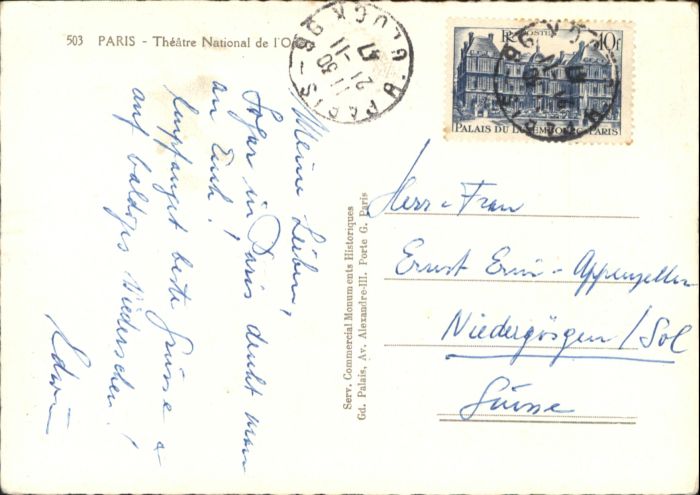 503 PARIS - Théâtre National de l'O
PARIS
GLUCK
11 30
21-11
47
POSTES
10f
PALAIS DU LUXEMBOURG-PARIS
Meine Lieben,
Sogar in Paris denkt man
an Euch!
Empfanget beste Grüsse &
auf baldiges Wiedersehen!
Edwin
Serv. Commercial Monuments Historiques
Gd. Palais, Av. Alexandre-III. Porte G. Paris
Herr - Frau
Ernst Erni-Appenzeller
Niedergösgen/Sol
Suisse